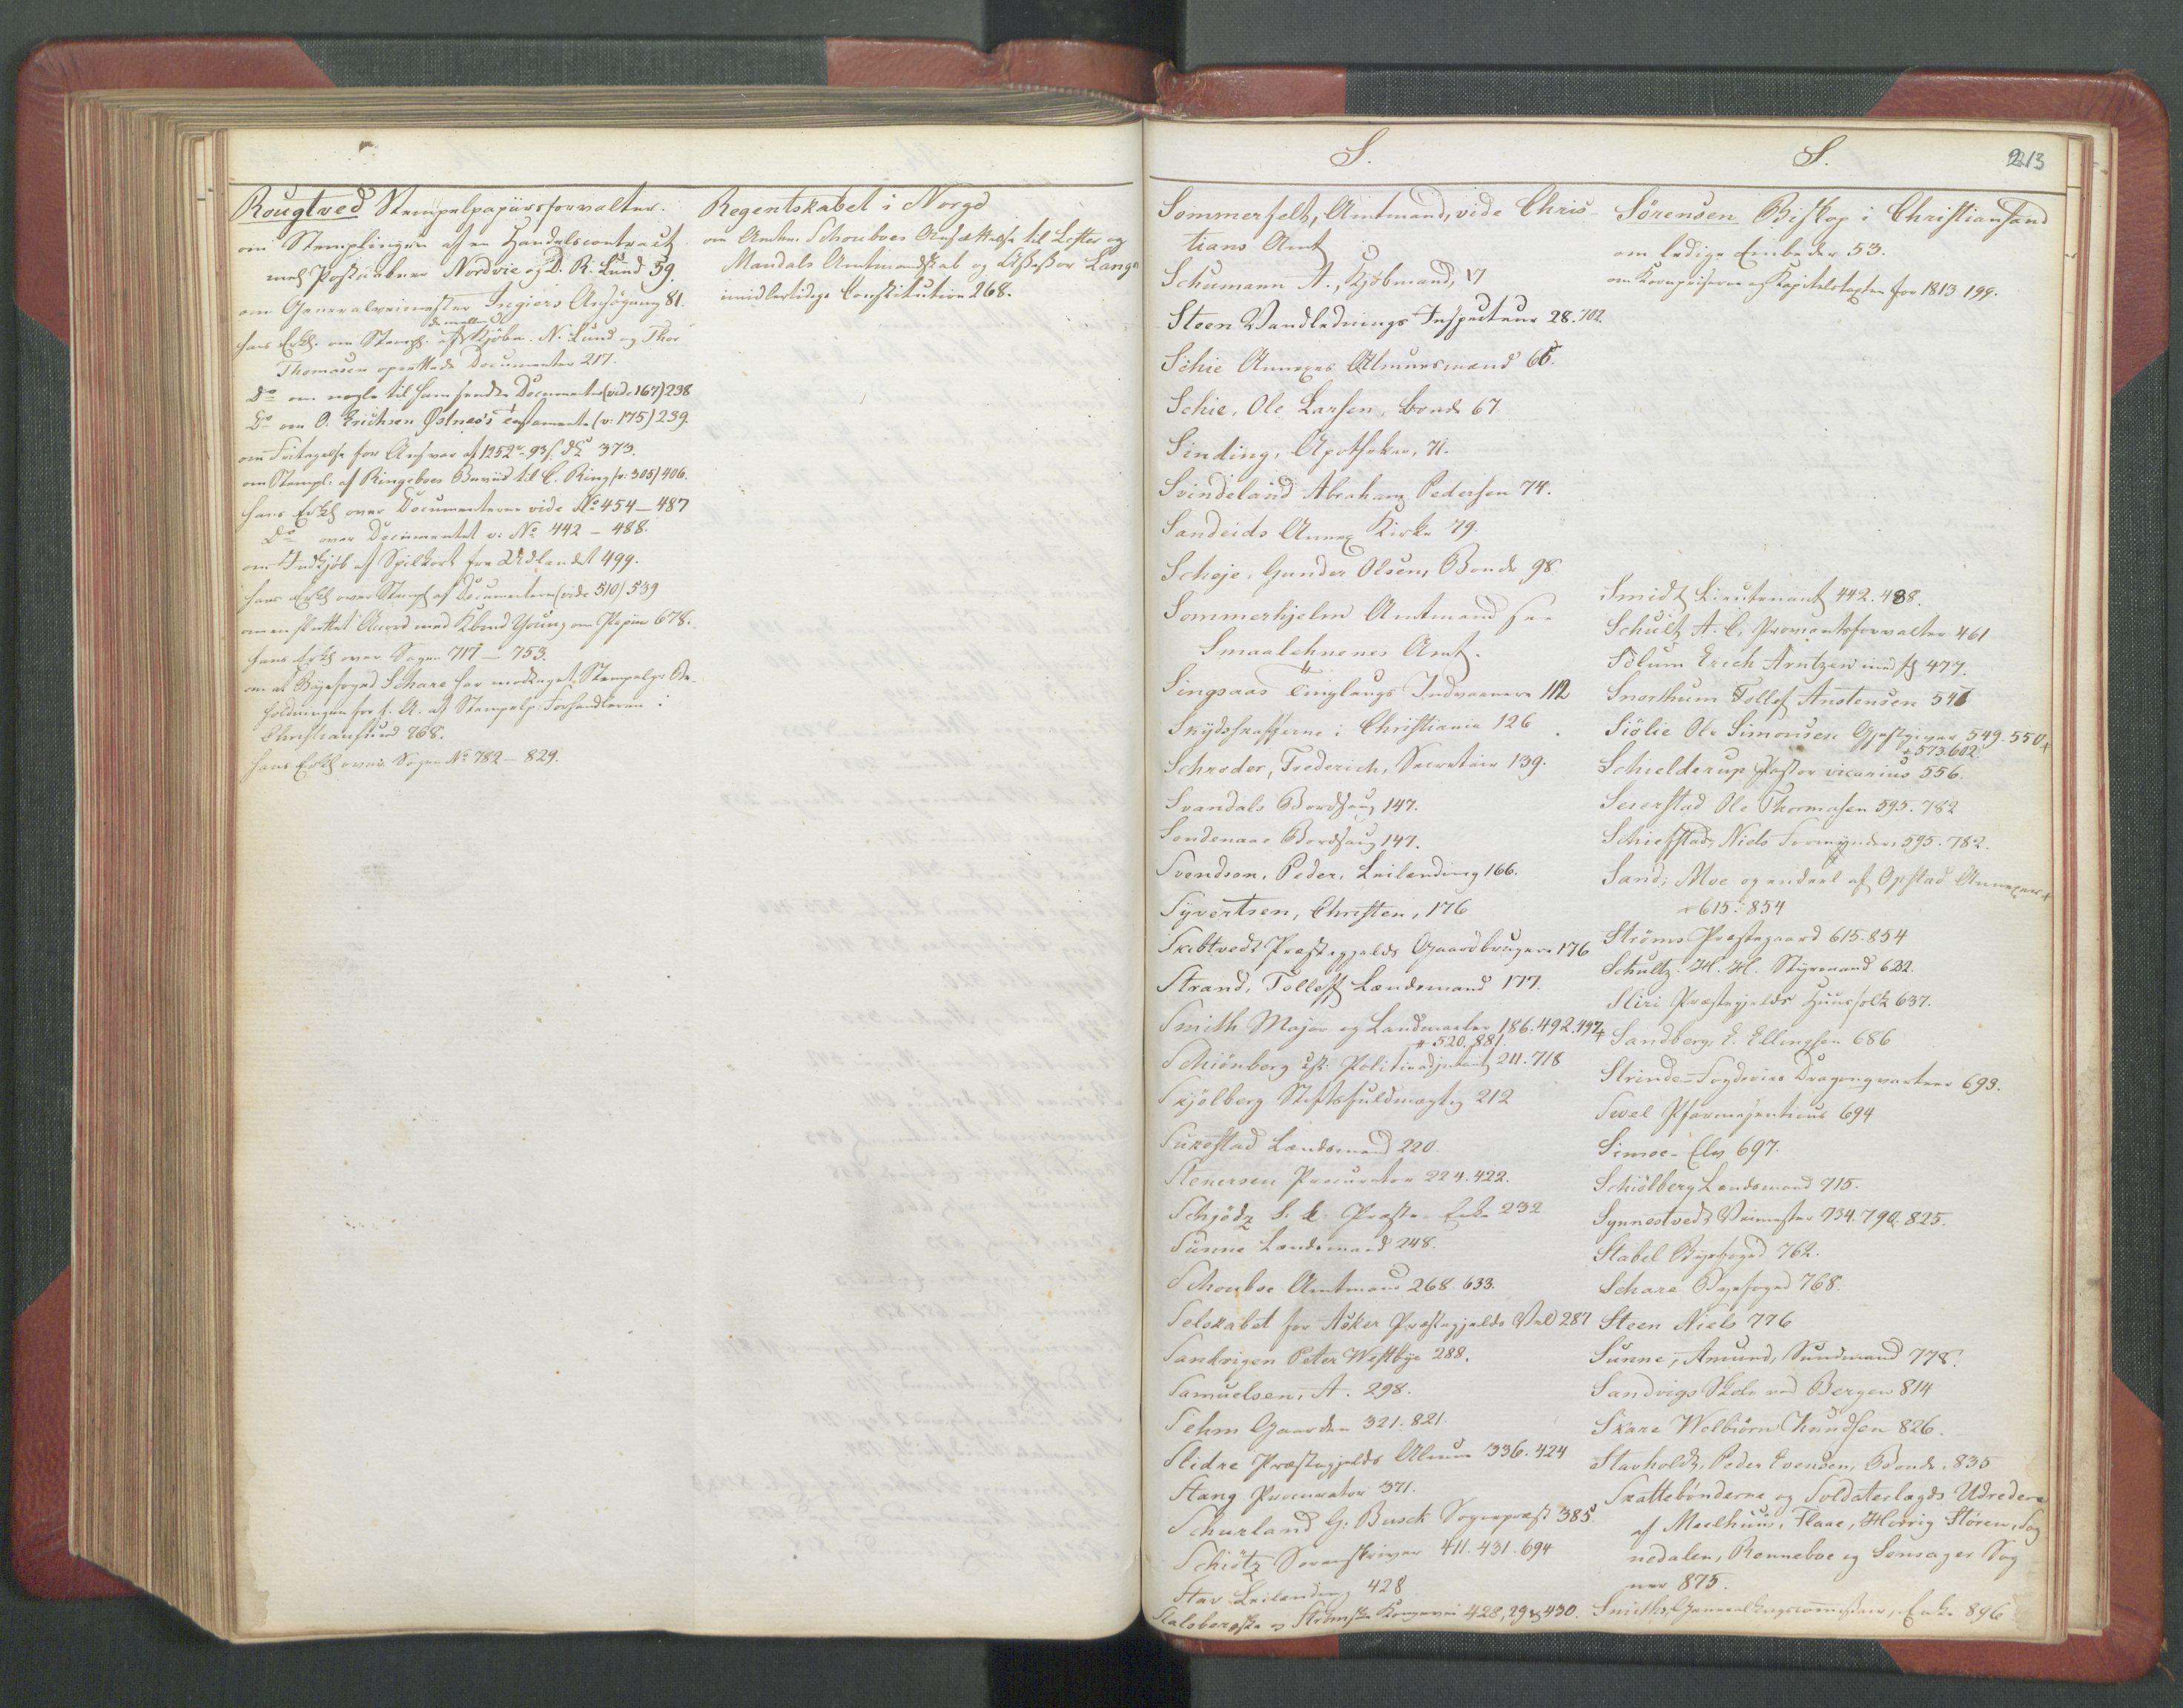 Rougtved Stempelpapiirsforvalter.
om Stemplingen af en Handelscontract
med Postaabner Nordvie og D. R. Lund 59.
om Generalveimester Ingiers Ansøgning 81.
hans Erkl. om Stempl. af de mellem Kjøbm. N. Lund og Thor
Thomasen oprettede Documenter 217.
Do om nogle til ham sendte Documenter (vide 167) 238
Do om O. Erichsen Østnes's Testamente (v: 175) 239.
om Fritagelse for Ansvar af 1252 93 373.
om Stempl. af Ringeboes Beviis til C. Ring (v: 305) 406.
hans Erkl over Documenterne vide No 454 — 487
Do over Documentet v: No 442 — 488.
om Indkjøb af Spilkort fra Udlandet 499.
hans Erkl over Stempl af Documenterne (vide 510) 539
om en sluttet Accord med Kbmd Young om Papiir 678.
hans Erkl over Sagen 717 — 753.
om at Byefoged Schare har modtaget Stempelp: Be-
holdningen for f. A. af Stempelp: Forhandleren i
Christiansund 768.
hans Erkl over Sagen No 782 — 829.
Regentskabet i Norge
om Amtm. Schouboes Ansættelse til Lister og
Mandals Amtmandskab og Assessor Lange
imidlertidige Constitution 268.
S.
Sommerfelt, Amtmand, vide Chris-
tians Amt
Schumann A., Kjøbmand, 17
Steen Vandlednings Inspecteur 28. 702.
Schie Annexes Almuesmænd 66.
Schie, Ole Larsen, bonde 67.
Sinding, Apotheker, 71.
Svindeland Abraham Pedersen 74.
Sandeids Annex Kirke 79.
Scheje, Gunder Olsen, Bonde 98.
Sommerhjelm Amtmand see
Smaalehnenes Amt.
Singsaas Tinglaugs Indvaanere 112
Skydsskafferne i Christiania 126
Schrøder, Frederich, Secretair 139.
Svandals Bordsaug 147.
Sondenaae Bordsaug 147.
Svendsen, Peder, Leilending 166.
Syvertsen, Christen, 176
Skibtvedt Præstegjelds Gaardbrugere 176
Strand, Tollef Lændsmand 177.
Smith Major og Landmaaler 186. 492. 497 +
+ 520. 881
Schiönberg Politieadjutant 211. 718
Skjølberg Stiftsfuldmægtig 212
Lændsmand 220
Stenersen Procurator 224. 422.
Schjödz Præste-Enke 232
Sunne Lændsmand 248.
Schouboe Amtmand 268. 633.
Selskabet for Asker Præstegjelds Vel 287
Sandvigen Peter Westbye 288.
Samuelsen, A. 298.
Sehm Gaarden 321. 821.
Slidre Præstegjelds Almue 336. 424
Stang Procurator 371.
Schurland G. Busch Sognepræst 385.
Schiötz Sorenskriver 411. 431. 694
Stav Leilending 428
Stalsbergske og Strømske Kongevei 428, 29 & 430.
S.
213
Sörensen Biskop i Christiansand
om ledige Embeder 53.
om Kornpriserne af Kapitelstaxten for 1813 199.
Smidt Lieutenant 442. 488.
Schult A. C., Proviantforvalter 461
Solum Erich Arntzen med fl 477.
Snorthum Tollef Anstensen 546
Siölie Ole Simonsen Gjestgiver 549. 550 +
+ 573. 602.
Schielderup Pastor vicarius 556.
Seierstad Ole Thomasen 595. 782
Schiefstad, Niels Formynder 595. 782.
Sand, Moe og endeel af Opstad Annexer +
+ 615. 854
Ströms Præstegaard 615. 854
Schultz. H. H. Styrmand 622.
Sliri Præstegjelds Huusfolk 637.
Sandberg, E. Ellingsen 686
Strinde-Fogderies Dragonqvarterer 693.
Sevel Pharmaceuticus 694
Simoe-Elv 697.
Schiölberg Lændsmand 715.
Synnestvedt Veimester 734. 790. 825.
Stabel Byefoged 762.
Schare Byefoged 768.
Steen Niels 776
Sunne, Amund, Sundmand 778.
Sandvigs Skole ved Bergen 814
Skare Welbiörn Knudsen 826.
Stavholdt, Peder Evensen, Bonde. 835
Skattebönderne og Soldaterlægds Udredere
af Meelhuus, Flaae, Horrig Støren, Sog
nedalen, Renneboe og Sog
ner 875.
Smiths, Generalkrigscommissair, Enke 896